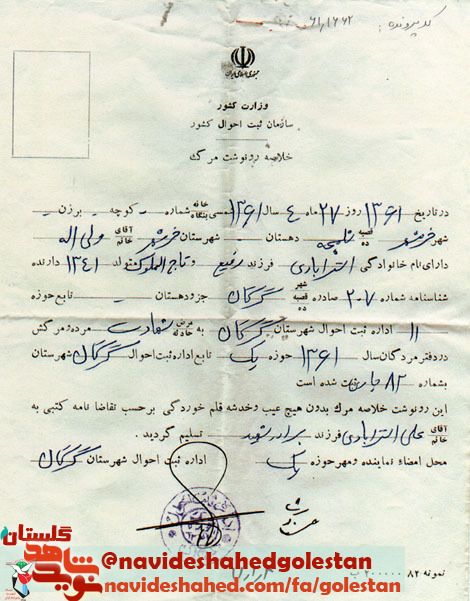 کد پرونده: ۶۱٫۱۶۶۲
جمهوری اسلامی ایران
وزارت کشور
سازمان ثبت احوال کشور
خلاصه رونوشت مرگ
در تاریخ ۱۳۶۱ روز ۲۷ ماه ۴ سال ۱۳۶۱ شمسی خانه بنگاه شماره - کوچه - برزن -
شهر خرمشهر قصبه ده شلمچه دهستان - شهرستان خرمشهر آقای خانم ولی اله
دارای نام خانوادگی استرابادی فرزند رفیع و تاج الملوک متولد ۱۳۴۱ دارنده
شناسنامه شماره ۲۰۷ صادره شهر قصبه ده گرگان جزو دهستان - تابع حوزه
۱۱ اداره ثبت احوال شهرستان گرگان به مرض حادثه شهادت مرده و مرگش
در دفتر مردگان سال ۱۳۶۱ حوزه یک تابع اداره ثبت احوال گرگان شهرستان
بشماره ۸۲ جاری ثبت شده است
این رونوشت خلاصه مرگ بدون هیچ عیب و خدشه قلم خوردگی بر حسب تقاضا نامه کتبی به
آقای خانم علی استرابادی فرزند برادر شهید تسلیم گردید.
محل امضاء نماینده و مهر حوزه یک اداره ثبت احوال شهرستان گرگان
گلستان
نوید شاهد
@navideshahedgolestan
navideshahed.com/fa/golestan
نمونه ۸۲